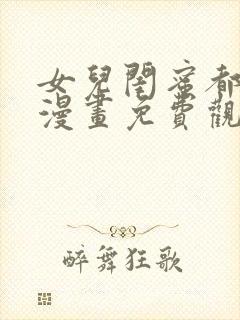 女兒閨蜜都
漫畫免費觀
醉舞狂歌